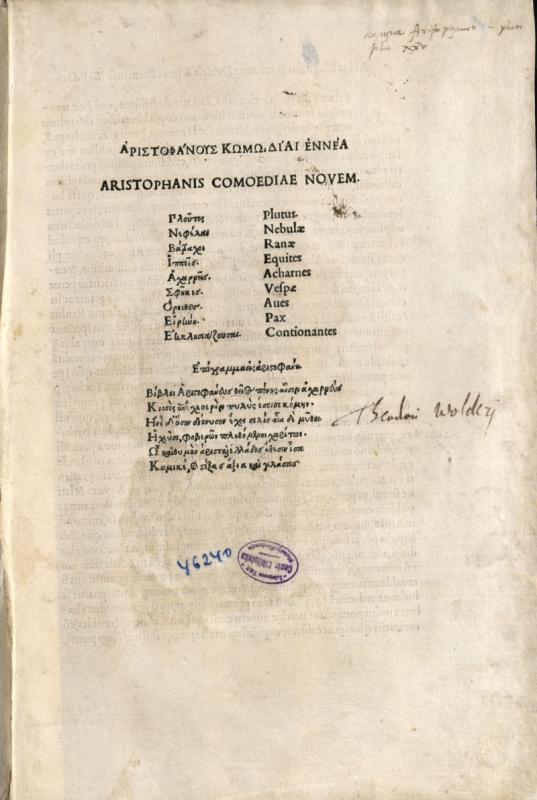 ΑΡΙΣΤΟΦΑ'ΝΟΥΣ ΚΩΜΩΔΙ'ΑΙ ἘΝΝΕ'Α
ARISTOPHANIS COMOEDIAE NOVEM.
Πλοῦτος Plutus.
Νεφέλαι Nebulæ
Βάτραχοι Ranæ
Ἱππεῖς. Equites
Ἀχαρνεῖς. Acharnes
Σφῆκες. Veſpæ
Ὄρνιθες. Aues
Εἰρήνη. Pax
Ἐκκλησιάζουσαι. Contionantes
Ἐπίγραμμα εἰς ἀριστοφάνη.
Βίβλοι Ἀριστοφάνους θεῖος πόνος αἷσιν ἀχαρνεὺς
Κισσὸς ἐπὶ χλοερὴν πουλὺς ἔσεισε κόμην.
Ἠνίδ' ὅσον διόνυσον ἔχει σελὶς οἷα δὲ μῦθοι
Ἠχεῦσι, φοβερῶν πληθόμενοι χαρίτων.
Ὦ καὶ θυμὸν ἄριστε, καὶ ἑλλάδος ἤθεσιν ἶσα
Κωμικέ, καὶ στίξας ἄξια καὶ γελάσας
Theodori Wolderj
46240